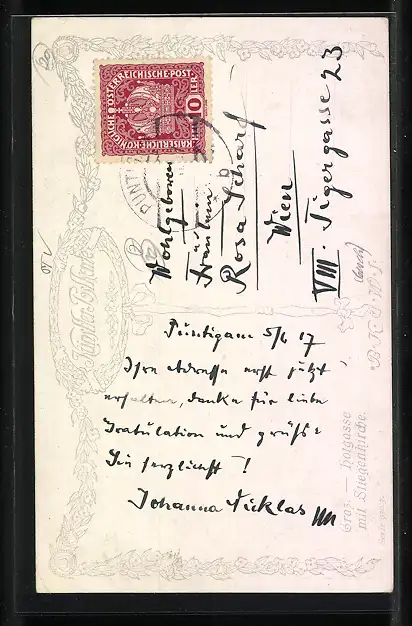 KAISERLICHE-KÖNIGLICHE ÖSTERREICHISCHE-POST
10
HELLER
PUNTI
b
Wohlgeboren
Fräulein
Rosa Scharf
Wien
VIII. Tigergasse 23
Puntigam 5/6 17
Ihre Adresse erst jetzt
erhalten, danke für liebe
Gratulation und grüße
Sie herzlichst!
Johanna Nicklas
B.K.W.I.
Graz — Hofgasse
mit Stiegenkirche.